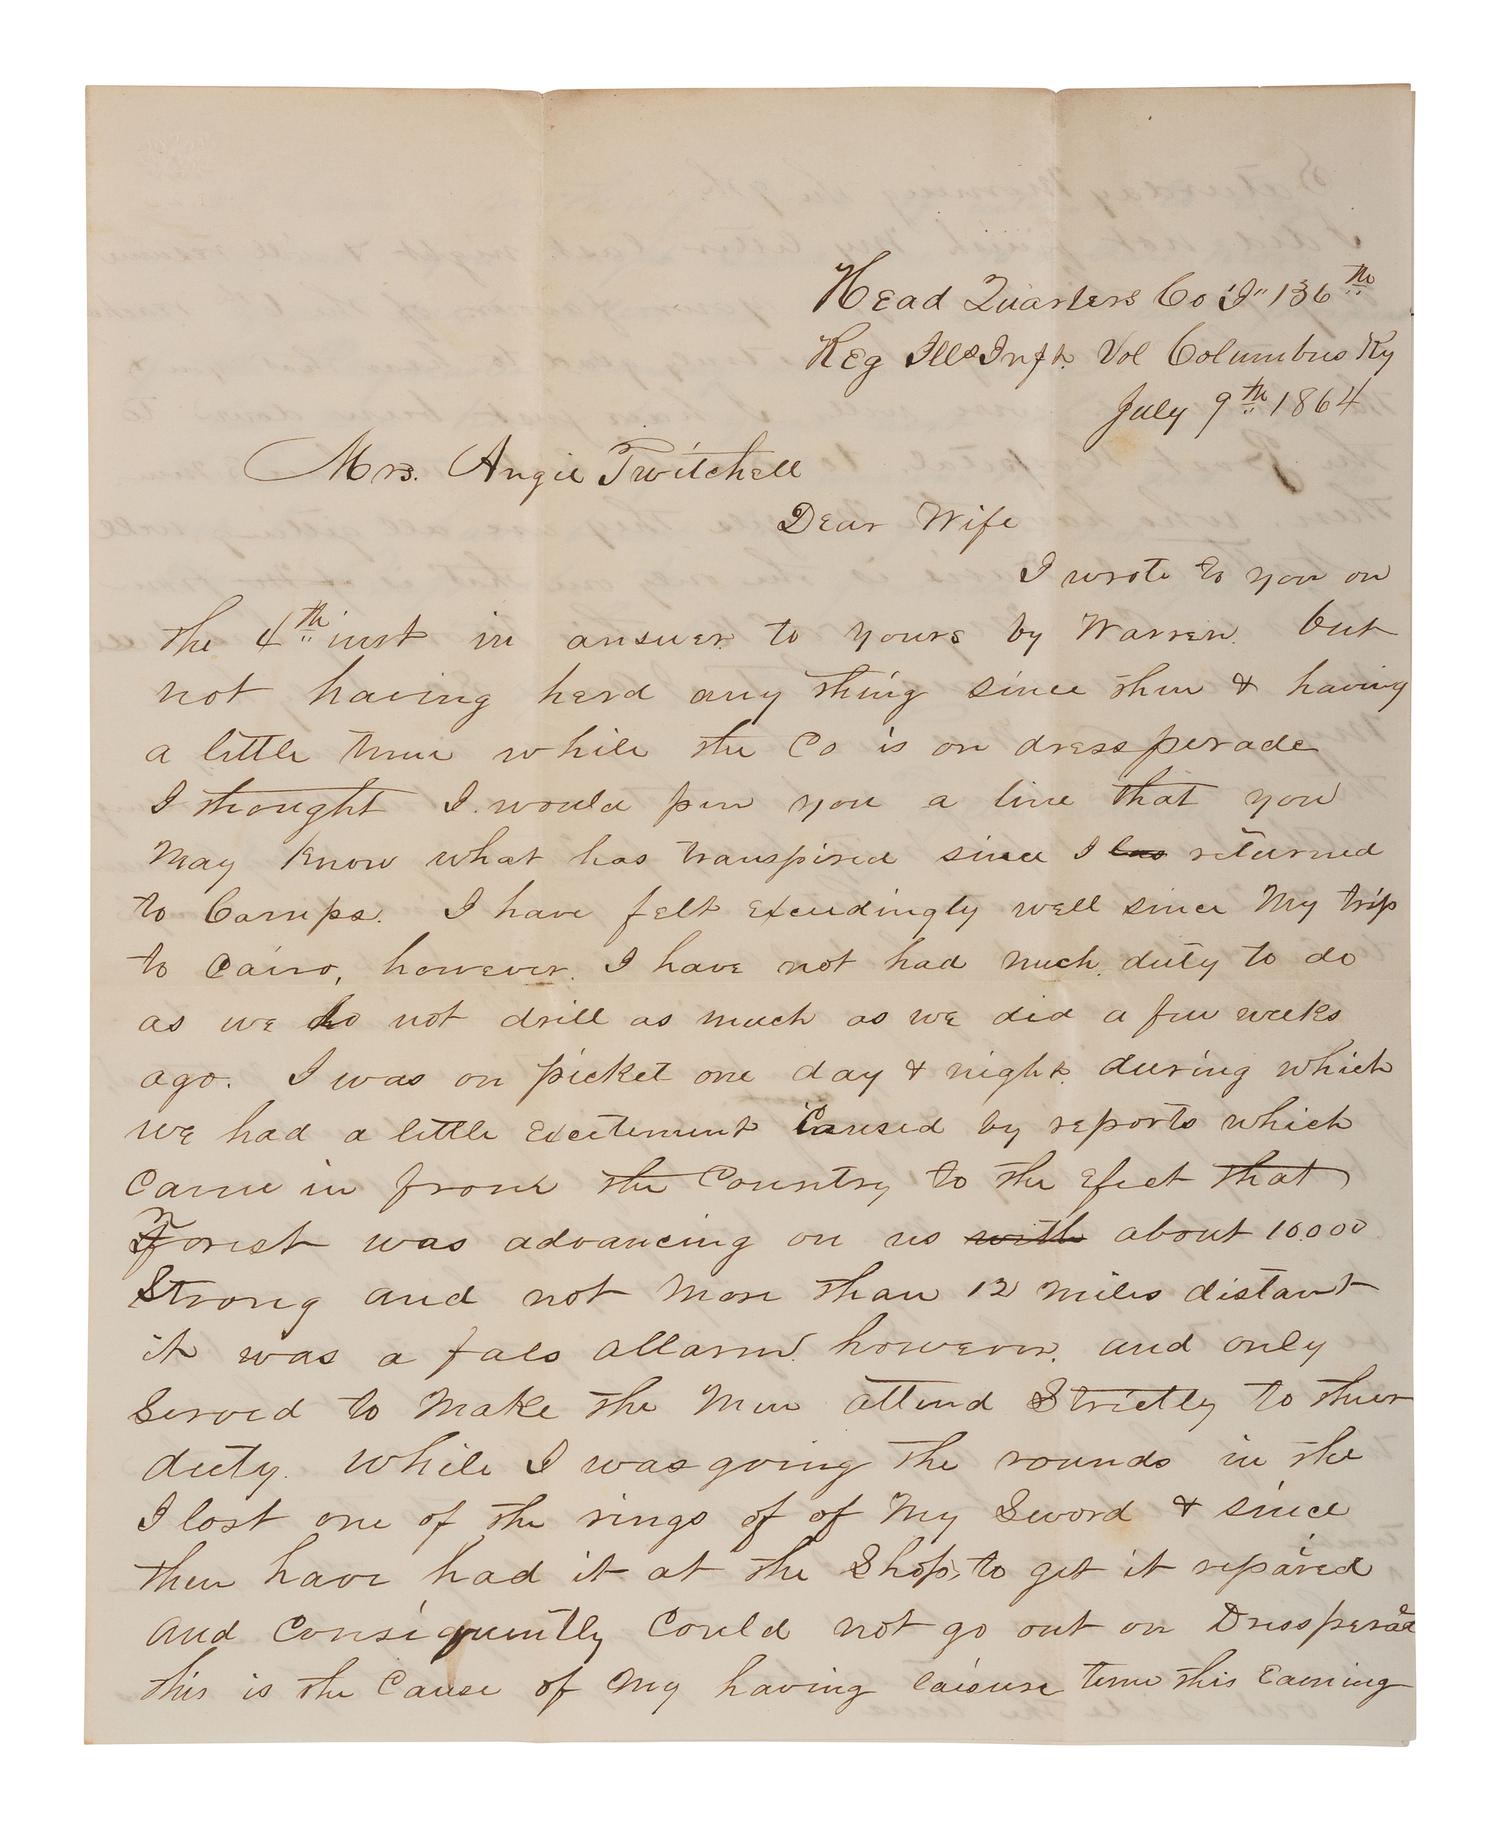 Head Quarters Co "I" 136th
Reg Ills Inft. Vol Columbus Ky
July 9th 1864
Mrs. Angie Twitchell
Dear Wife
I wrote to you on
the 4th inst in answer to yours by Warren. but
not having herd any thing since then & having
a little time while the Co is on dress perade
I thought I would pen you a line that you
May know what has transpired since I has returned
to Camps. I have felt excedingly well since My trip
to Cairo, however. I have not had much duty to do
as we do not drill as much as we did a few weeks
ago. I was on picket one day & night. during which
we had a little excitement Caused by reports which
Came in from the Country to the efect that
Forest was advancing on us with about 10.000
Strong and not More than 12 miles distant
it was a fals allarm. however. and only
Served to Make the Men attend Strictly to their
duty. while I was going the rounds in the
I lost one of the rings of of My Sword & since
then have had it at the Shop, to get it repared
and Consiquently Could not go out on Dressperade
this is the Cause of My having laisure time this Eavning